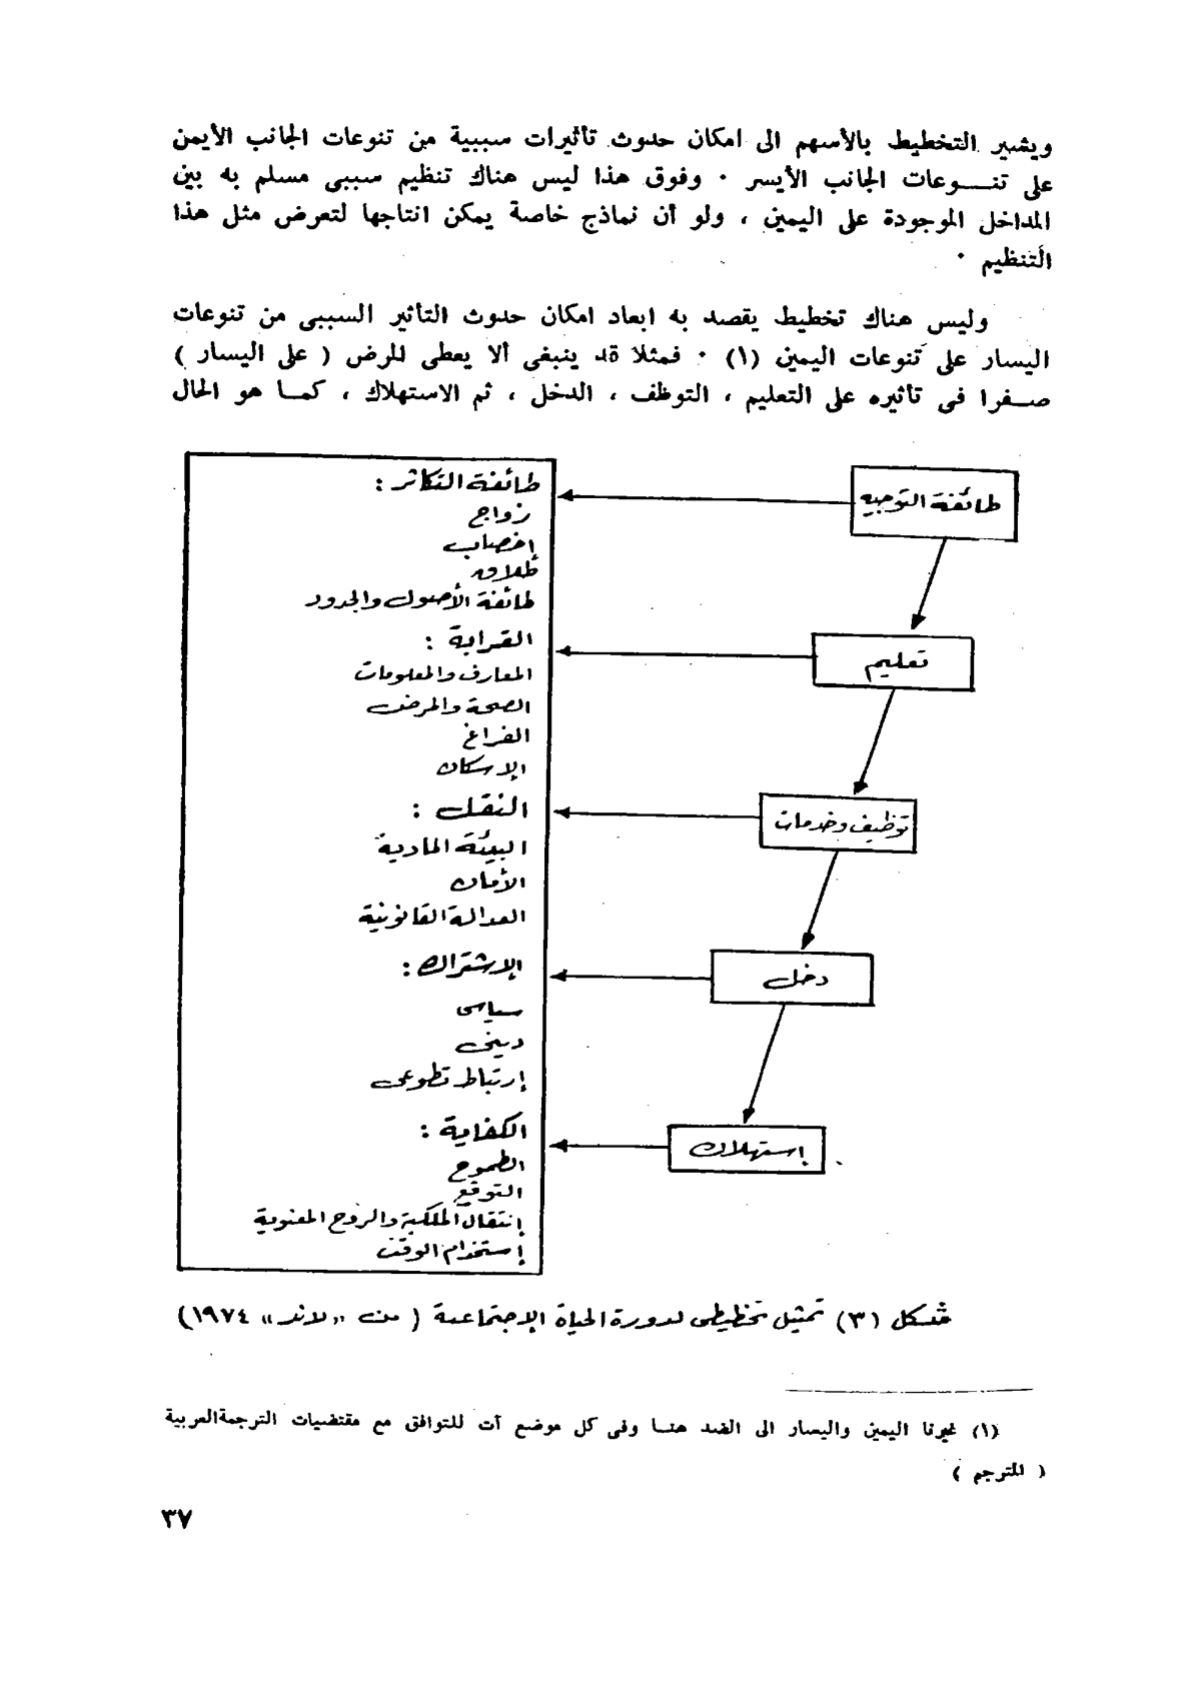 ويشير التخطيط بالأسهم الى امكان حدوث تأثيرات سببية من تنوعات الجانب الأيمن
على تنـــوعات الجانب الأيسر ٠ وفوق هذا ليس هناك تنظيم سببى مسلم به بين
المداخل الموجودة على اليمين ، ولو أن نماذج خاصة يمكن انتاجها لتعرض مثل هذا
التنظيم ٠
وليس هناك تخطيط يقصد به ابعاد امكان حدوث التأثير السببى من تنوعات
اليسار على تنوعات اليمين (١) ٠ فمثلا قد ينبغى ألا يعطى المرض ( على اليسار )
صـفرا فى تأثيره على التعليم ، التوظف ، الدخل ، ثم الاستهلاك ، كمـا هو الحال
طائفة التوجيه
تعليم
توظيف وخدمات
دخل
إستهلاك
طائفة التكاثر :
زواج
إخصاب
طلاق
طائفة الأصول والجدود
القرابة :
المعارف والمعلومات
الصحة والمرض
الفراغ
الإسكان
النقل :
البيئة المادية
الأمان
العدالة القانونية
الإشتراك :
سياسى
دينى
إرتباط تطوعى
الكفاية :
الطموح
التوقع
إنتقال الملكية والروح المعنوية
إستخدام الوقت
شكل (٣) تمثيل تخطيطى لدورة الحياة الإجتماعية ( من «لاند» ١٩٧٤)
(١) غيرنا اليمين واليسار الى الضد هنـا وفى كل موضع آت للتوافق مع مقتضيات الترجمةالعربية
( المترجم )
٣٧